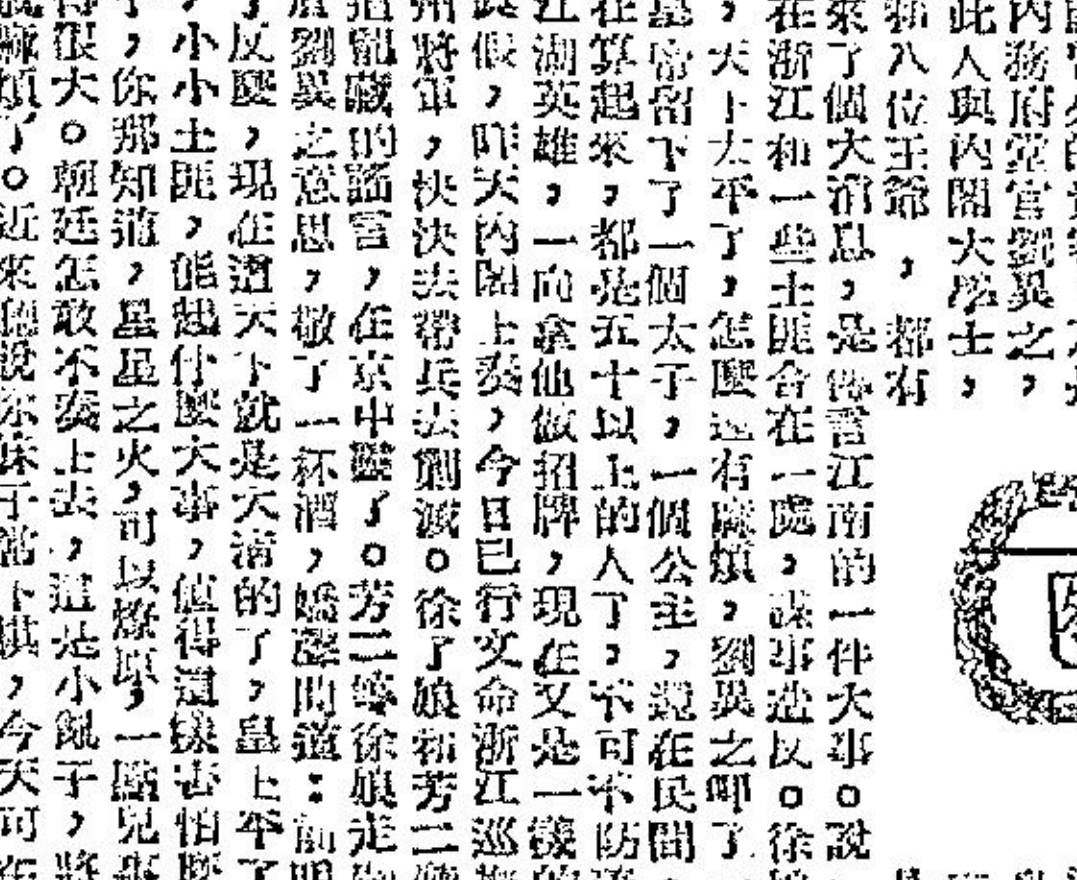 內務府堂官劉異之，
此人與內閣大學士，
和八位王爺，都有
來了個大消息，是 言江南的一件大事。說
在浙江和一些土匪合在一處，謀事造反。徐
，天下太平了，怎麼還有麻煩，劉異之呷了
皇帝留下了一個太子，一個公主，還在民間
在算起來，都是五十以上的人了，不可不防
江湖英雄，一向拿他做招牌，現在又是一 的
假，昨天內閣上奏，今日已行文命浙江巡撫
州將軍，快快去帶兵去剿滅。徐了娘和芳二
龍藏的謠言，在京中聽了。芳二 徐娘走
劉異之意思，敬了一杯酒，嬌聲問道：
了反麼，現在這天下就是大清的了，皇上平了
，小小土匪，能起什麼大事，值得這樣害怕麼
，你那知道，星星之火，可以燎原，一點兒
得很大。朝廷怎敢不奏上去，這是小亂子，將
麻煩了。近來聽說你妹子常下棋，今天可在